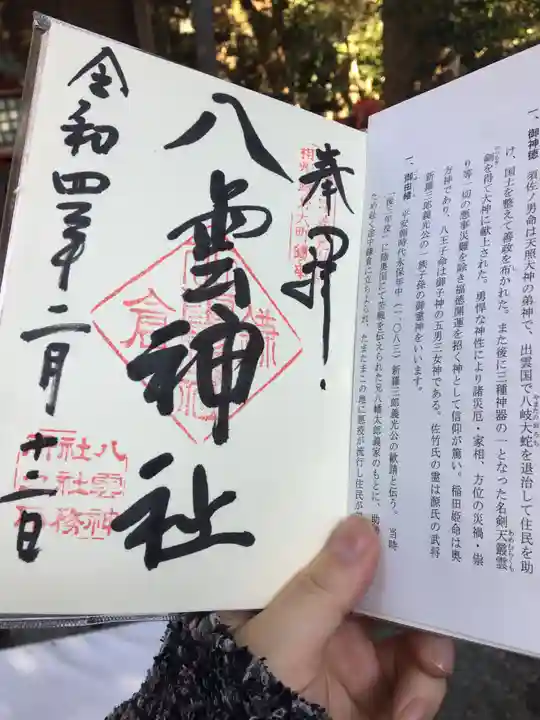 奉拝
八雲神社
令和四年二月十二日
八雲神
社社務
一、御神徳 須佐ノ男命は天照大神の弟神で、出雲国で八岐大蛇を退治して住民を助
やまたのおろち
け、国土を整えて善政を布かれた。また後に三種神器の一となった名剣天叢雲
あめのむらくも
剣を得て大神に献上された。勇悍な神性により諸災厄・家相、方位の災禍・祟
り等一切の悪事災難を除き福徳開運を招く神として信仰が篤い。稲田姫命は奥
方神であり、八王子命は御子神の五男三女神である。佐竹氏の霊は源氏の武将
新羅三郎義光公の一族子孫の御霊神をいいます。
一、御由緒 平安朝時代永保年中(一、〇八三)新羅三郎義光公の勧請と伝う。 当時
「後三年役」に陸奥国にて苦戦を伝えられた兄八幡太郎義家のもとに、助
ため急ぐ途中鎌倉に立ちよったが、たまたまこの地に悪疫が流行し住民が